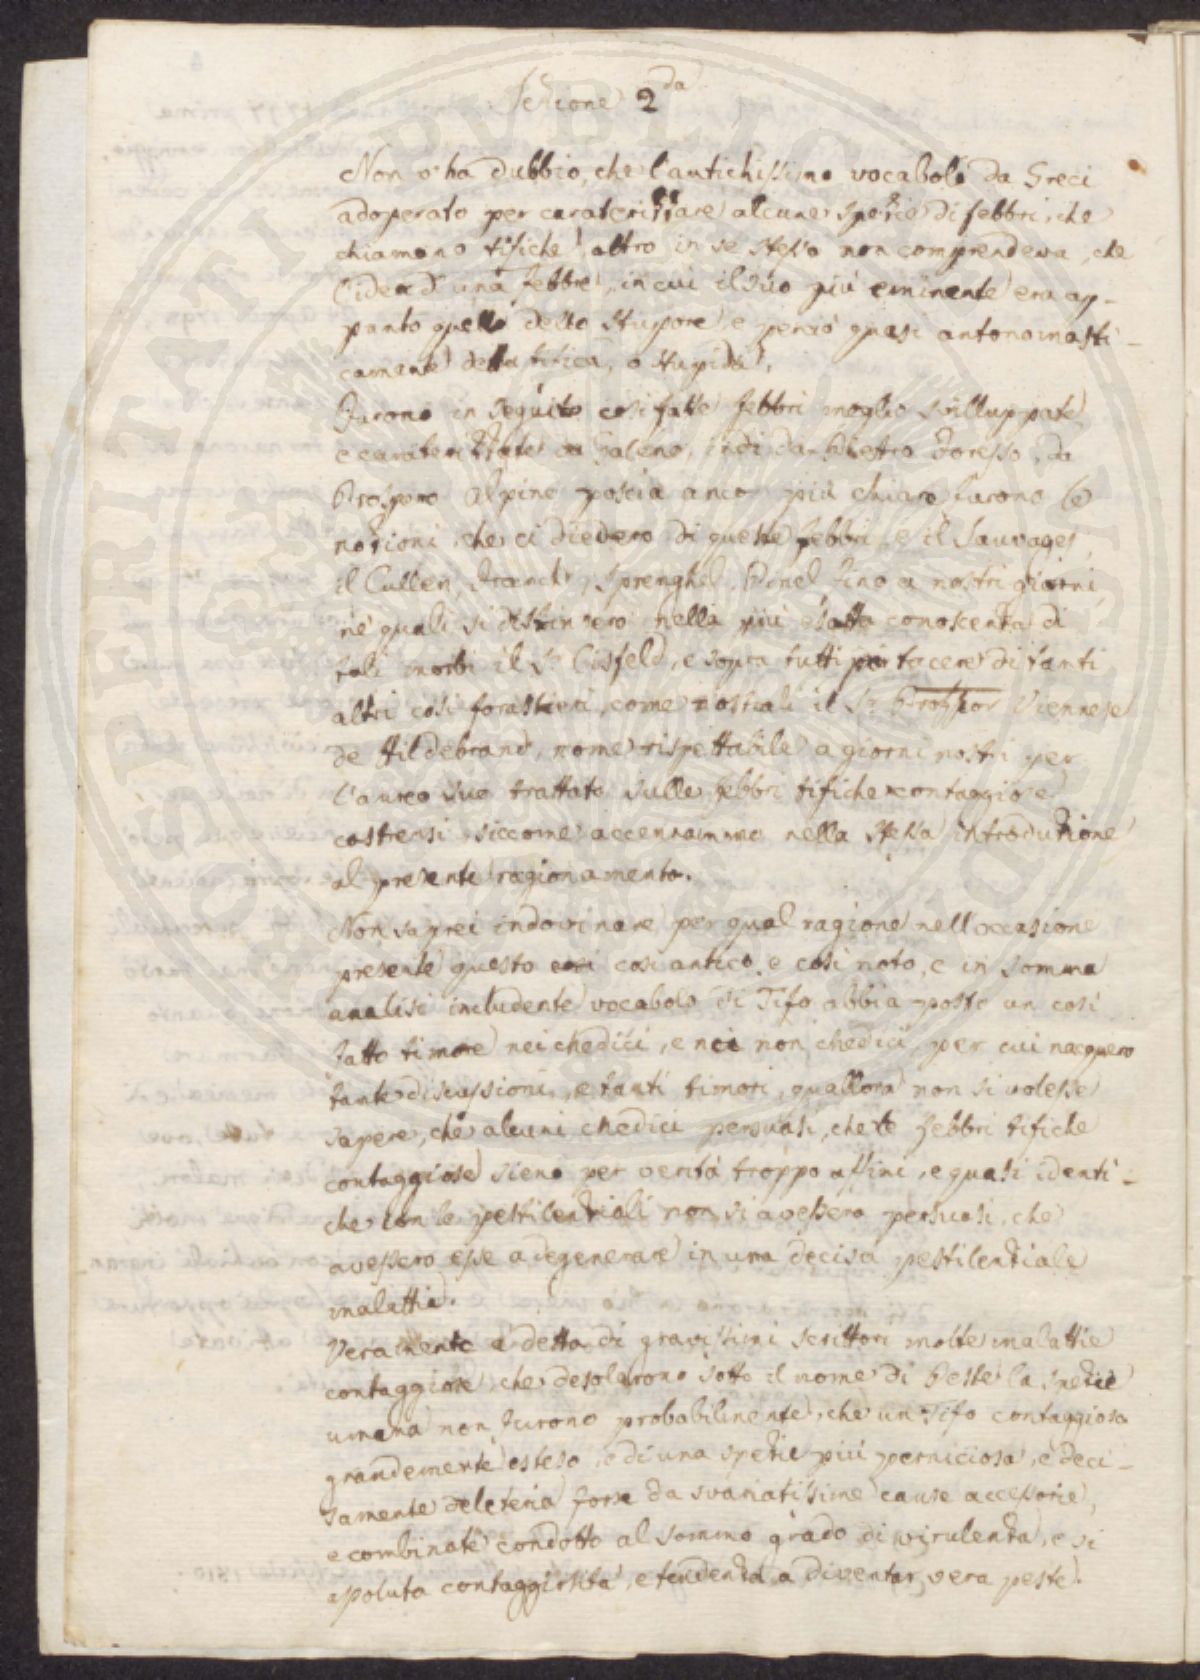 Sezione 2da
Non v'ha dubbio, che l'antichissimo vocabolo da Greci
adoperato per caraterizzare alcune spezie di febbri, che
chiamano tifiche, altro in se stesso non comprendeva, che
l'idea d'una febbre, in cui il suo più eminente era ap-
punto quello dello stupore, e perciò quasi antonomasti-
camente detta tifica, o stupida.
Furono in seguito così fatte febbri meglio svilluppate,
e caraterizzate da Galeno, indi da Pietro Foresto, da
Prospero Alpino poscia ancor più chiare furono le
nozioni, che ci diedero di queste febbri e il Sauvages,
il Cullen, Franch, Sprenghel, Pinel fino a nostri giorni,
ne' quali si distinsero nella più esatta conoscenza di
tali morbi il Sr. Cisfeld, e sopra tutti per tacere di tanti
altri così forastieri, come nostrali il Sr. Professor Viennese
de Hildebrand, nome rispettabile a giorni nostri per
l'aureo suo trattato sulle febbri tifiche contaggiose
castrensi, siccome accennammo nella stessa introduzione
al presente ragionamento.
Non saprei indovinare per qual ragione nell'occasione
presente questo così antico, e così noto, e in somma
analisi includente vocabolo di Tifo abbia posto un così
fatto timore nei Medici, e nei non Medici, per cui nacquero
tante discussioni, e tanti timori, quallora non si volesse
sapere, che alcuni Medici persuasi, che le febbri tifiche
contaggiose sieno per verità troppo affini, e quasi identi-
che con le pestilenziali non si avessero persuasi, che
avessero esse a degenerare in una decisa pestilenziale
malattia.
Veramente a detta di gravissimi scrittori molte malattie
contaggiose, che desolarono sotto il nome di Peste la spezie
umana non furono probabilmente, che un Tifo contaggioso
grandemente esteso, e di una spezie più perniciosa, e deci-
samente deleteria forse da svariatissime cause accessorie,
e combinate condotto al sommo grado di virulenza, e di
assoluta contaggiosità, e tendenza a diventar vera peste.
PROSPERITATI PUBLICAE